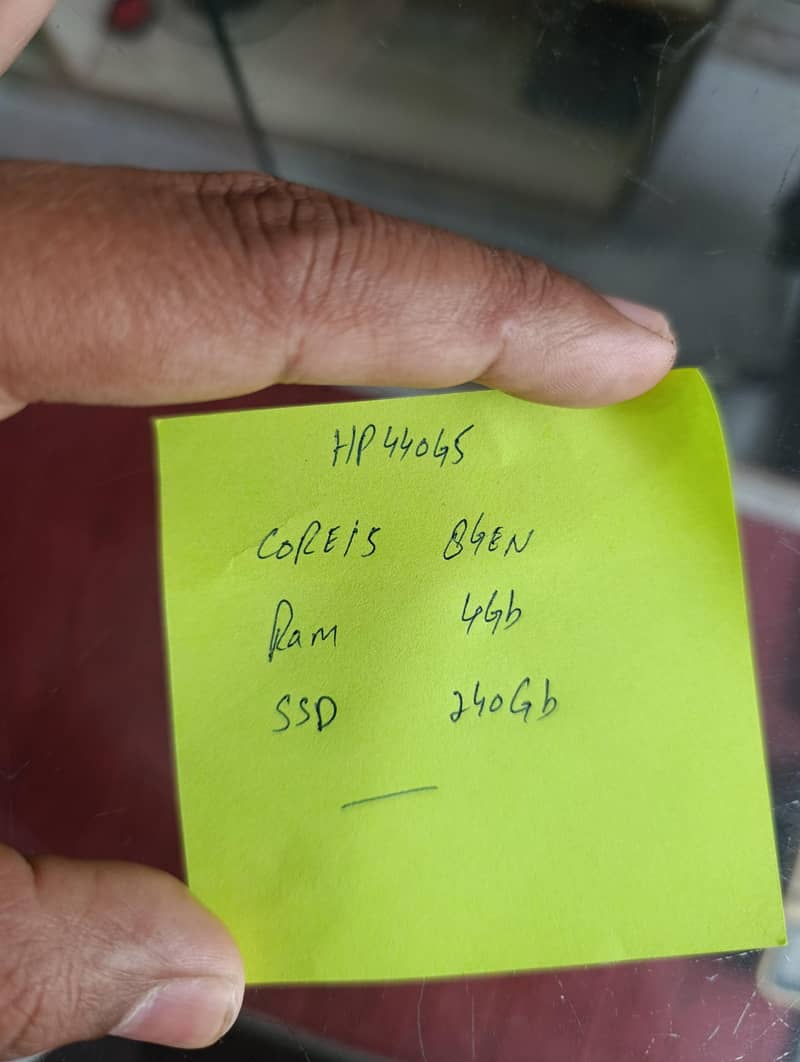 HP 440G5
COREi5 8GEN
Ram 4Gb
SSD 240Gb